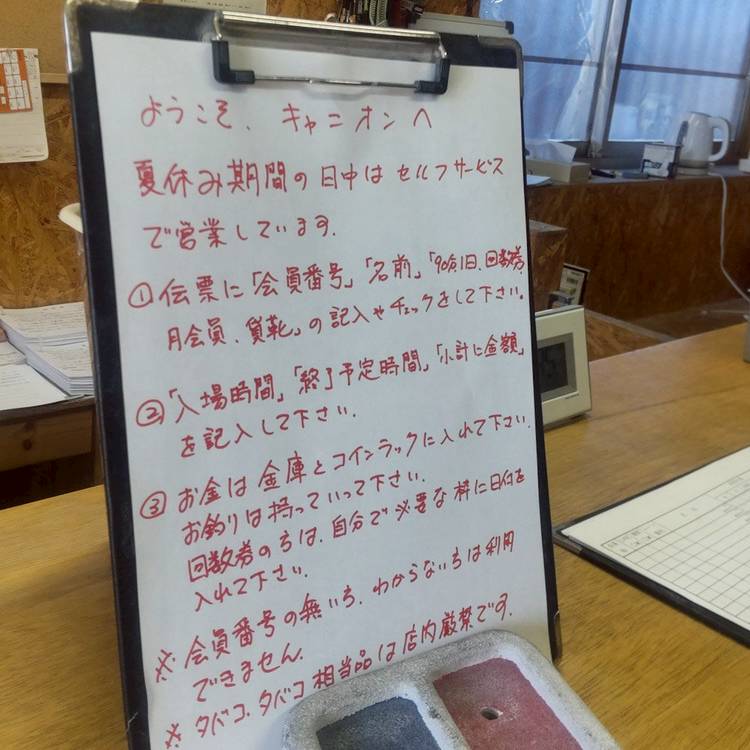 ようこそ、キャニオンへ
夏休み期間の日中はセルフサービス
で営業しています.
① 伝票に「会員番号」「名前」「90分,1日、回数券
月会員、貸靴」の記入やチェックをして下さい。
②「入場時間」「終了予定時間」「小計に金額」
を記入して下さい.
③ お金は金庫とコインラックに入れて下さい.
お釣りは持っていって下さい.
回数券の方は、自分で必要な枠に日付を
入れて下さい.
※ 会員番号の無い方、わからない方は利用
できません.
※ タバコ・タバコ相当品は店内厳禁です.